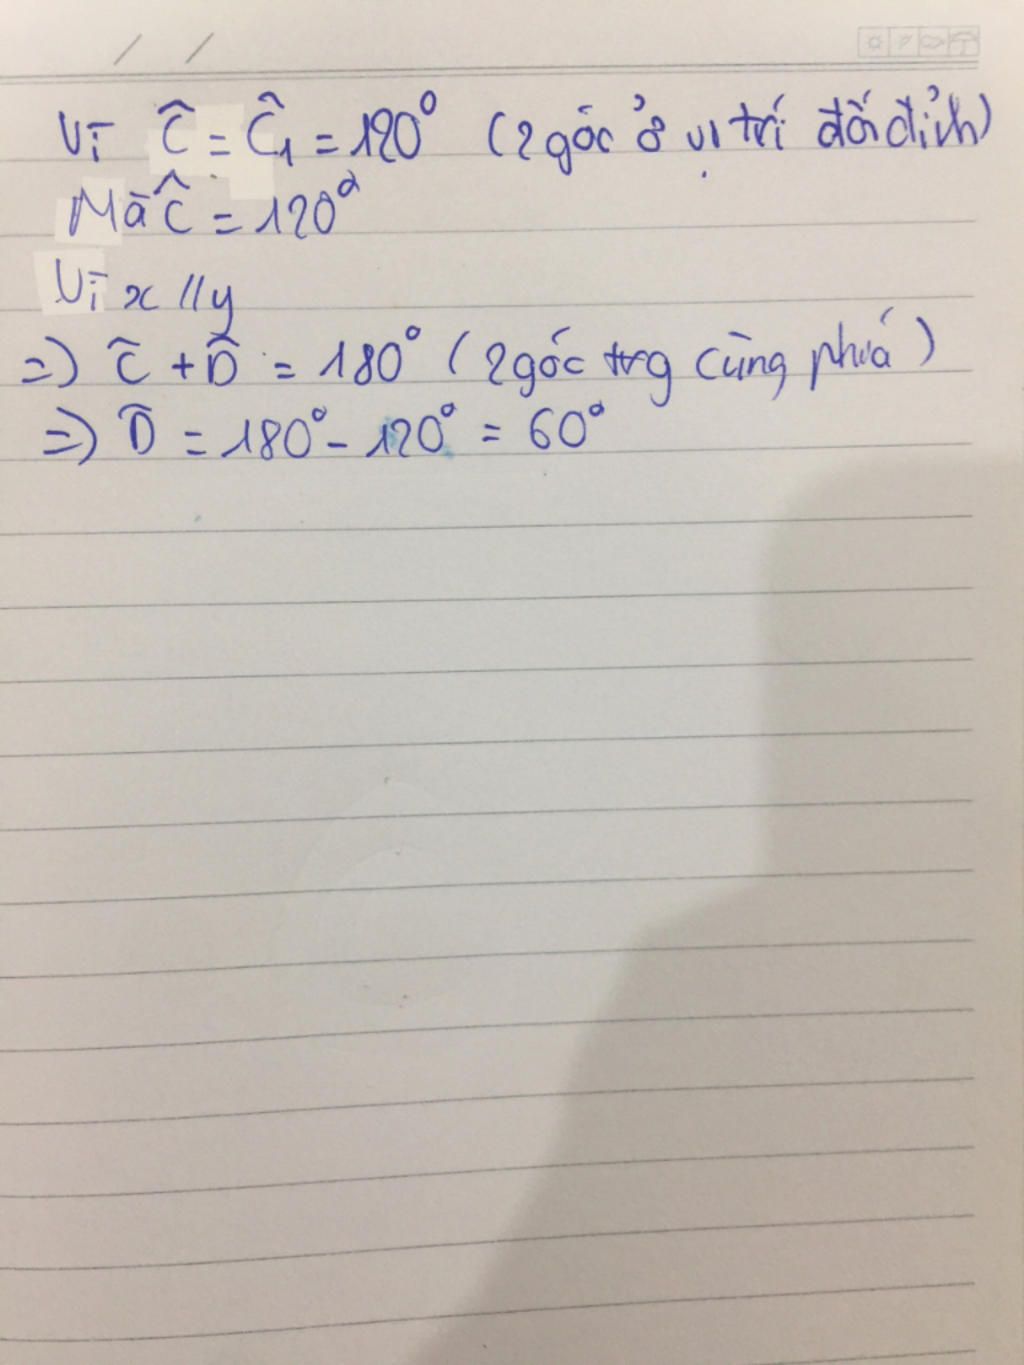 / /
Vì Ĉ = Ĉ₁ = 120° (2 góc ở vị trí đối đỉnh)
Mà Ĉ = 120°
Vì x // y
=> Ĉ + D̂ = 180° (2 góc trg cùng phía)
=> D̂ = 180° - 120° = 60°